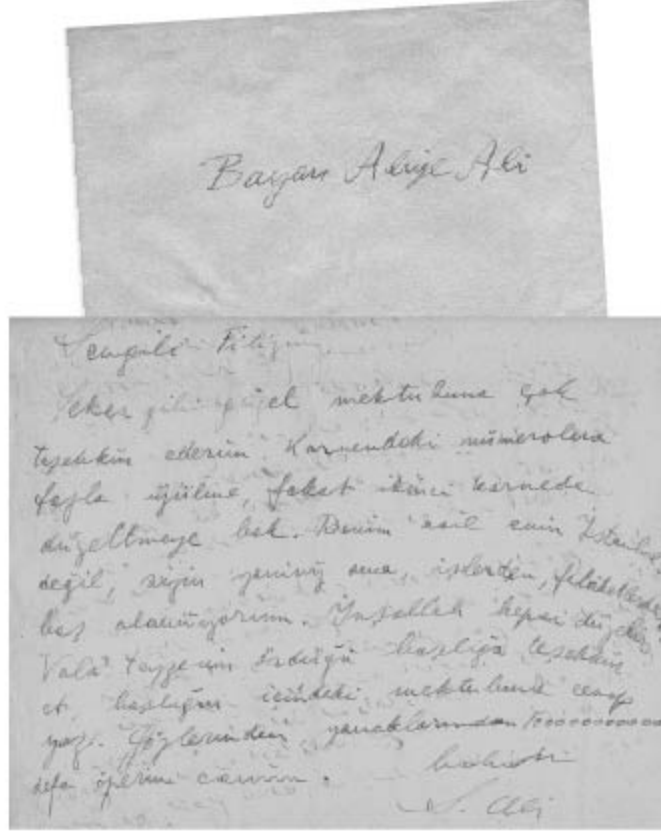 Bayan Aliye Ali
Sevgili Filiz
Şeker gibi güzel mektubuna çok
teşekkür ederim. Karnendeki nümerolara
fazla üzülme, fakat ikinci karnede
düzeltmeye bak. Benim asıl evim İstanbul
değil, sizin yanınız ama, işlerden, felâketlerden
baş alamıyorum. İnşallah hepsi düzelir.
Valâ teyzenin ördüğü başlığa teşekkür
et başlığın içindeki mektubuna cevap
yaz. Gözlerinden yanaklarından 1000000000000
defa öperim canım.
S. Ali